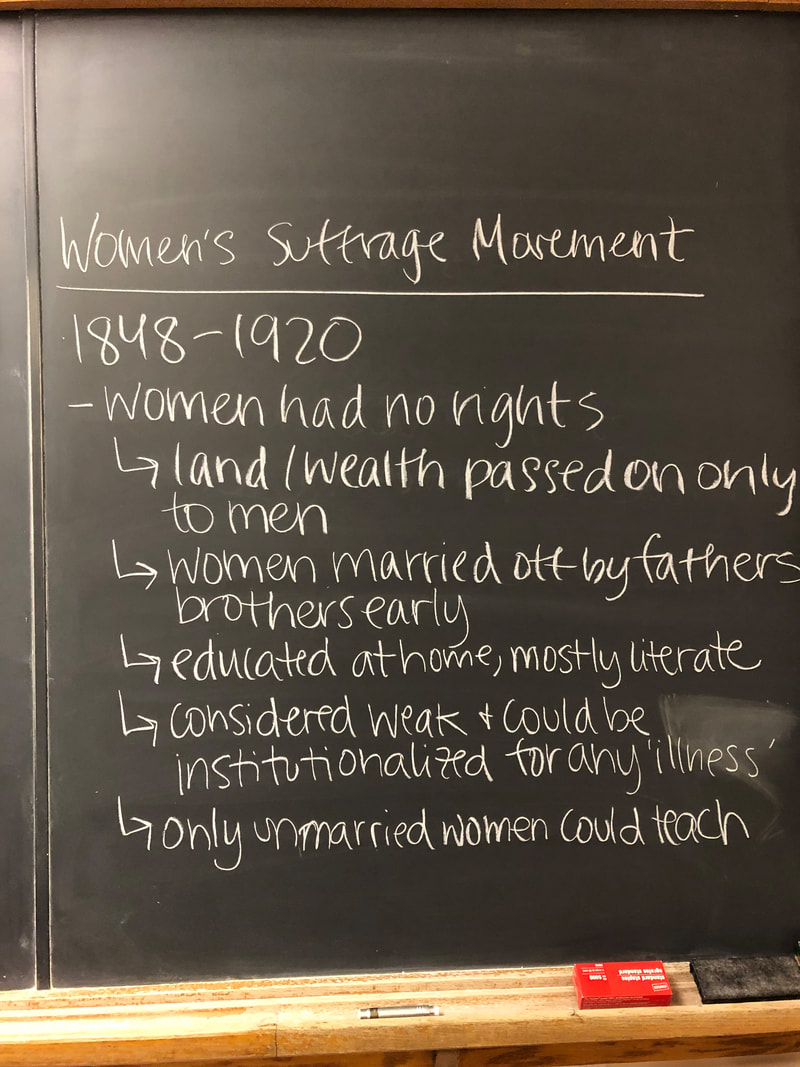 Women's Suffrage Movement
1848-1920
- women had no rights
↳ land/wealth passed on only
to men
↳ women married off by fathers
brothers early
↳ educated at home, mostly literate
↳ considered weak + could be
institutionalized for any 'illness'
↳ only unmarried women could teach
standard staples